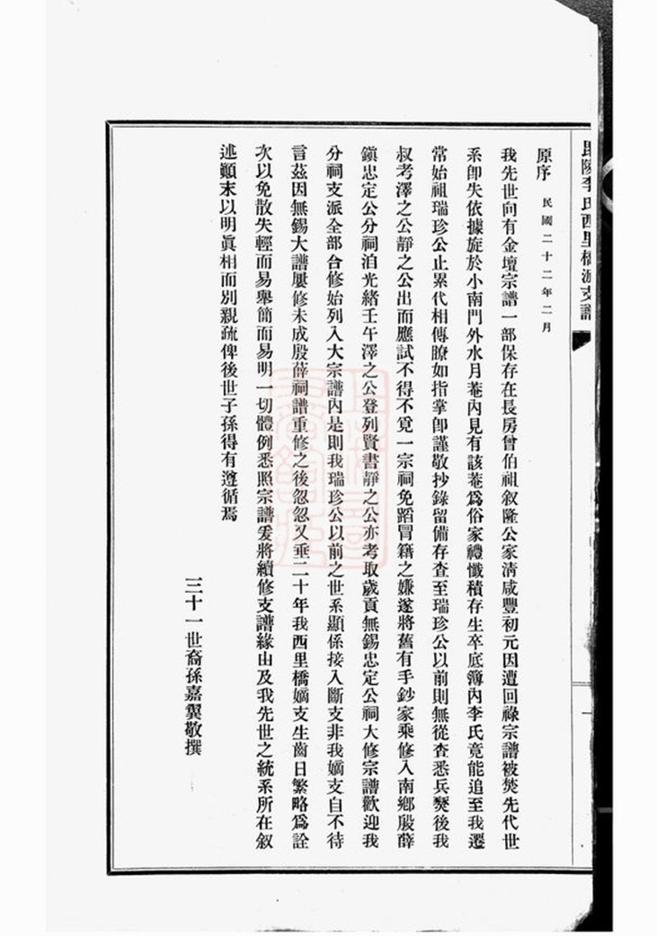 毘陵李氏西里橋派支譜
原序 民國二十二年二月
我先世向有金壇宗譜一部保存在長房曾伯祖叙隆公家淸咸豐初元因遭回祿宗譜被焚先代世
系卽失依據旋於小南門外水月菴內見有該菴爲俗家禮懺積存生卒底簿內李氏竟能追至我遷
常始祖瑞珍公止累代相傳瞭如指掌卽謹敬抄錄留備存查至瑞珍公以前則無從查悉兵燹後我
叔考澤之公靜之公出而應試不得不覓一宗祠免蹈冒籍之嫌遂將舊有手鈔家乘修入南鄉殷薛
鎭忠定公分祠洎光緒壬午澤之公登列賢書靜之公亦考取歲貢無錫忠定公祠大修宗譜歡迎我
分祠支派全部合修始列入大宗譜內是則我瑞珍公以前之世系顯係接入斷支非我嫡支自不待
言茲因無錫大譜屢修未成殷薛祠譜重修之後忽忽又垂二十年我西里橋嫡支生齒日繁略爲詮
次以免散失輕而易舉簡而易明一切體例悉照宗譜爰將續修支譜緣由及我先世之統系所在叙
述顚末以明眞相而別親疏俾後世子孫得有遵循焉
三十一世裔孫嘉翼敬撰
一